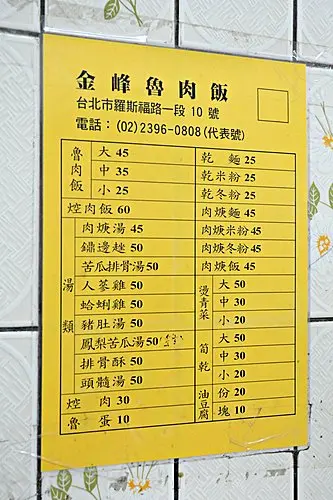 金峰魯肉飯
台北市羅斯福路一段 10 號
電話：(02)2396-0808(代表號)
魯肉飯
大 45
中 35
小 25
焢肉飯 60
湯類
肉焿湯 45
鼎邊趖 50
苦瓜排骨湯50
人蔘雞 50
蛤蜊雞 50
豬肚湯 50
鳳梨苦瓜湯50
排骨酥 50
頭髓湯 50
焢 肉 30
魯 蛋 10
乾 麵 25
乾米粉 25
乾冬粉 25
肉焿麵 45
肉焿米粉 45
肉焿冬粉 45
肉焿飯 45
燙青菜
大 50
中 30
小 20
筍乾
大 50
中 30
小 20
油豆腐
份 20
塊 10